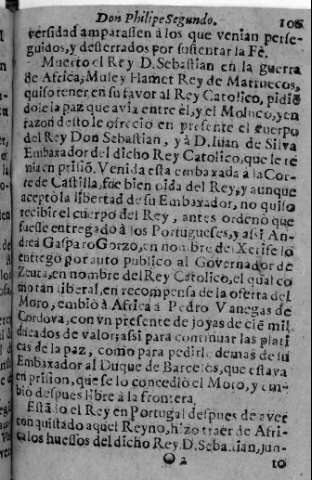 Don Philipe Segundo. 106
versidad amparassen à los que venian perse-
guidos, y desterrados por sustentar la Fè.
Muerto el Rey D. Sebastian en la guerra
de Africa, Muley Hamet Rey de Marruecos,
quiso tener en su favor al Rey Catolico, pidiò
dole la paz que avia entre èl, y el Moluco, y en
razon desto le ofreciò en presente el cuerpo
del Rey Don Sebastian, y à D. Iuan de Silva
Embaxador del dicho Rey Catolico, que le te
nia en prisiõ. Venida esta embaxada à la Cor-
te de Castilla, fue bien oida del Rey, y aunque
aceptò la libertad de su Embaxador, no quiso
recibir el cuerpo del Rey, antes ordenò que
fuesse entregado à los Portugueses, y assi An
drea Gasparo Gorzo, en nombre del Xerife lo
entregò por auto publico al Governador de
Zeuta, en nombre del Rey Catolico, el qual co
mo tan liberal, en recompensa de la oferta del
Moro, embiò à Africa à Pedro Vanegas de
Cordova, con vn presente de joyas de ciẽ mil
ducados de valor, assi para continuar las plati
cas de la paz, como para pedirle demas de su
Embaxador al Duque de Barcelos, que estava
en prision, que se lo concediò el Moro, y em-
biò despues libre à la frontera.
Estãdo el Rey en Portugal despues de aver
conquistado aquel Reyno, hizo traer de Afri-
ca los huessos del dicho Rey D. Sebastian, jun-
O 2 to